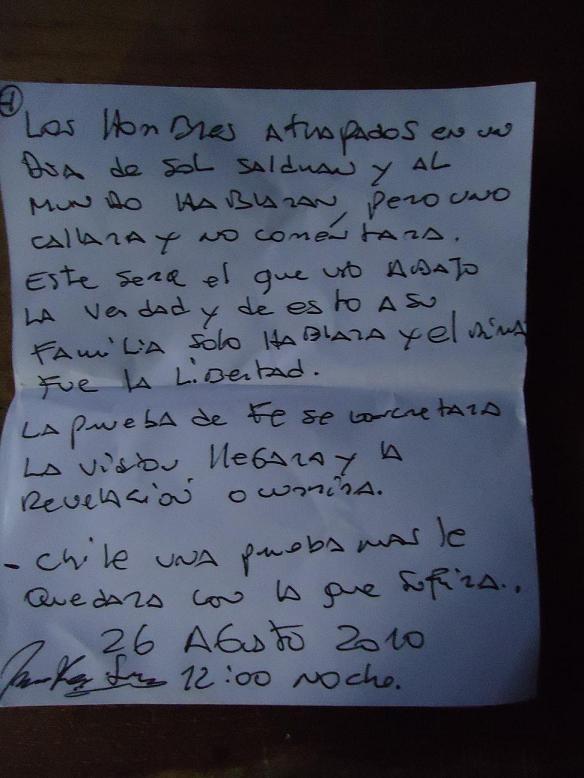 1
Los Hombres atrapados en un
Dia de sol saldran y al
mundo Hablaran, pero uno
callara y no comentara.
Este sera el que vio Abajo
la verdad y de esto a su
Familia solo Hablara y el
fue la libertad.
La prueba de Fe se concretara
La vision llegara y la
Revelacion ocurrira.
- Chile una prueba mas le
Quedara con la que sufrira..
26 Agosto 2010
12:00 noche.